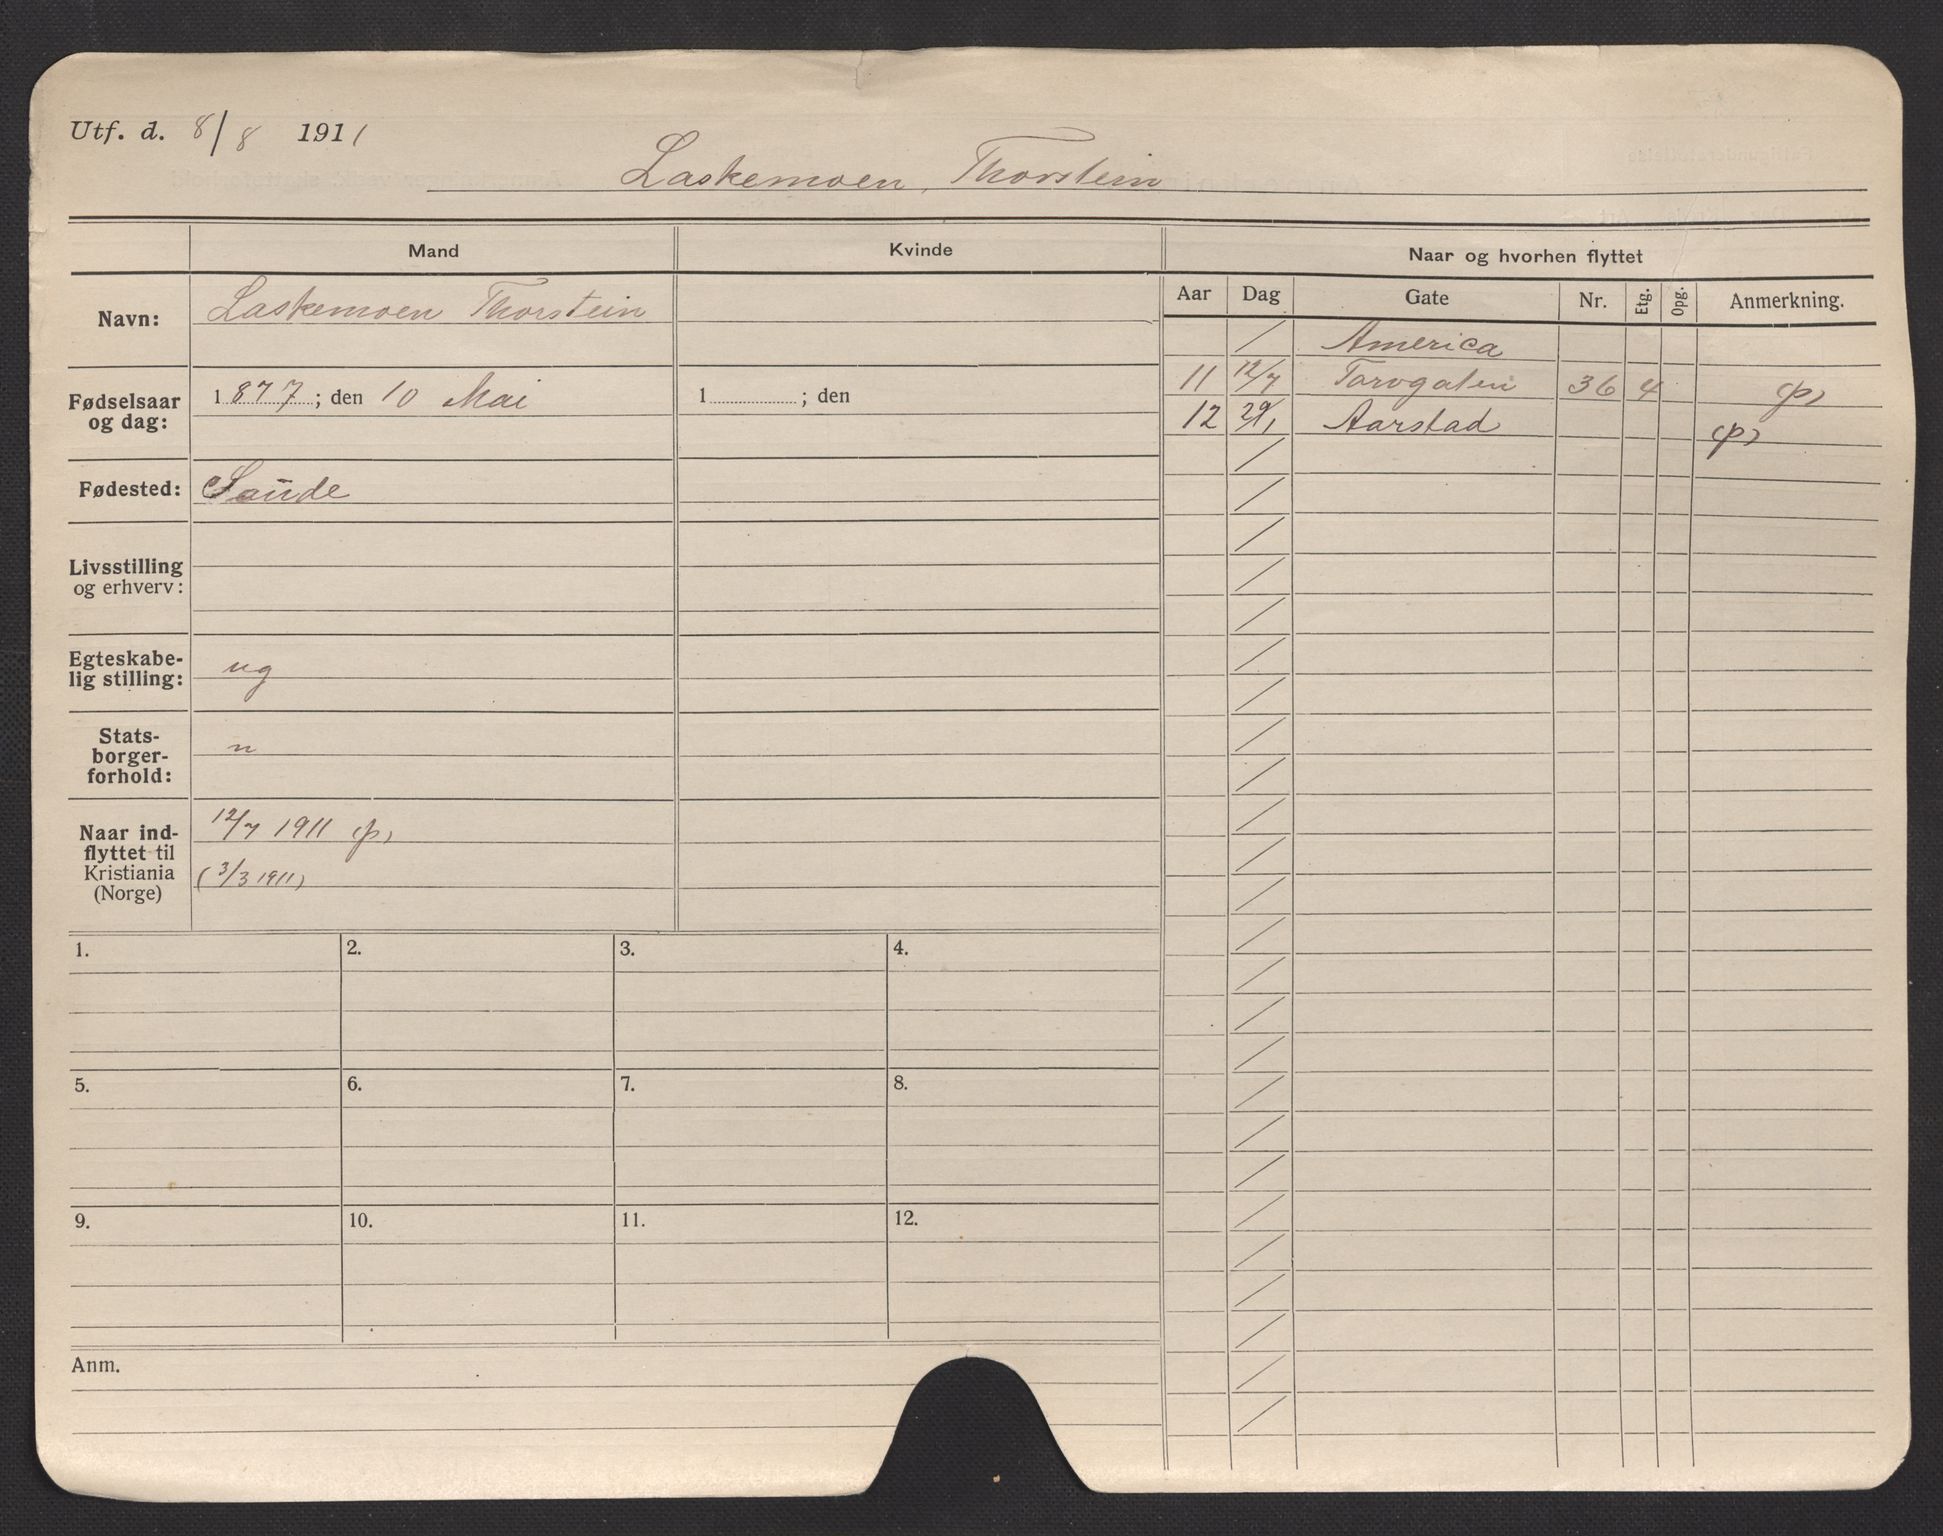 Utf. d. 8/8 1911
Laskemoen, Thorstein
Mand
Kvinde
Naar og hvorhen flyttet
Aar Dag Gate Nr. Etg. Opg. Anmerkning.
Navn: Laskemoen Thorstein
America
Fødselsaar og dag: 1877; den 10 Mai
1 ; den
11 12/7 Torvgaten 36 4 p)
12 29/1 Aarstad p)
Fødested: Saude
Livsstilling
og erhverv:
Egteskabe-
lig stilling: ug
Stats-
borger-
forhold: n
Naar ind-
flyttet til
Kristiania
(Norge)
12/7 1911 p)
(3/3 1911)
1. 2. 3. 4.
5. 6. 7. 8.
9. 10. 11. 12.
Anm.